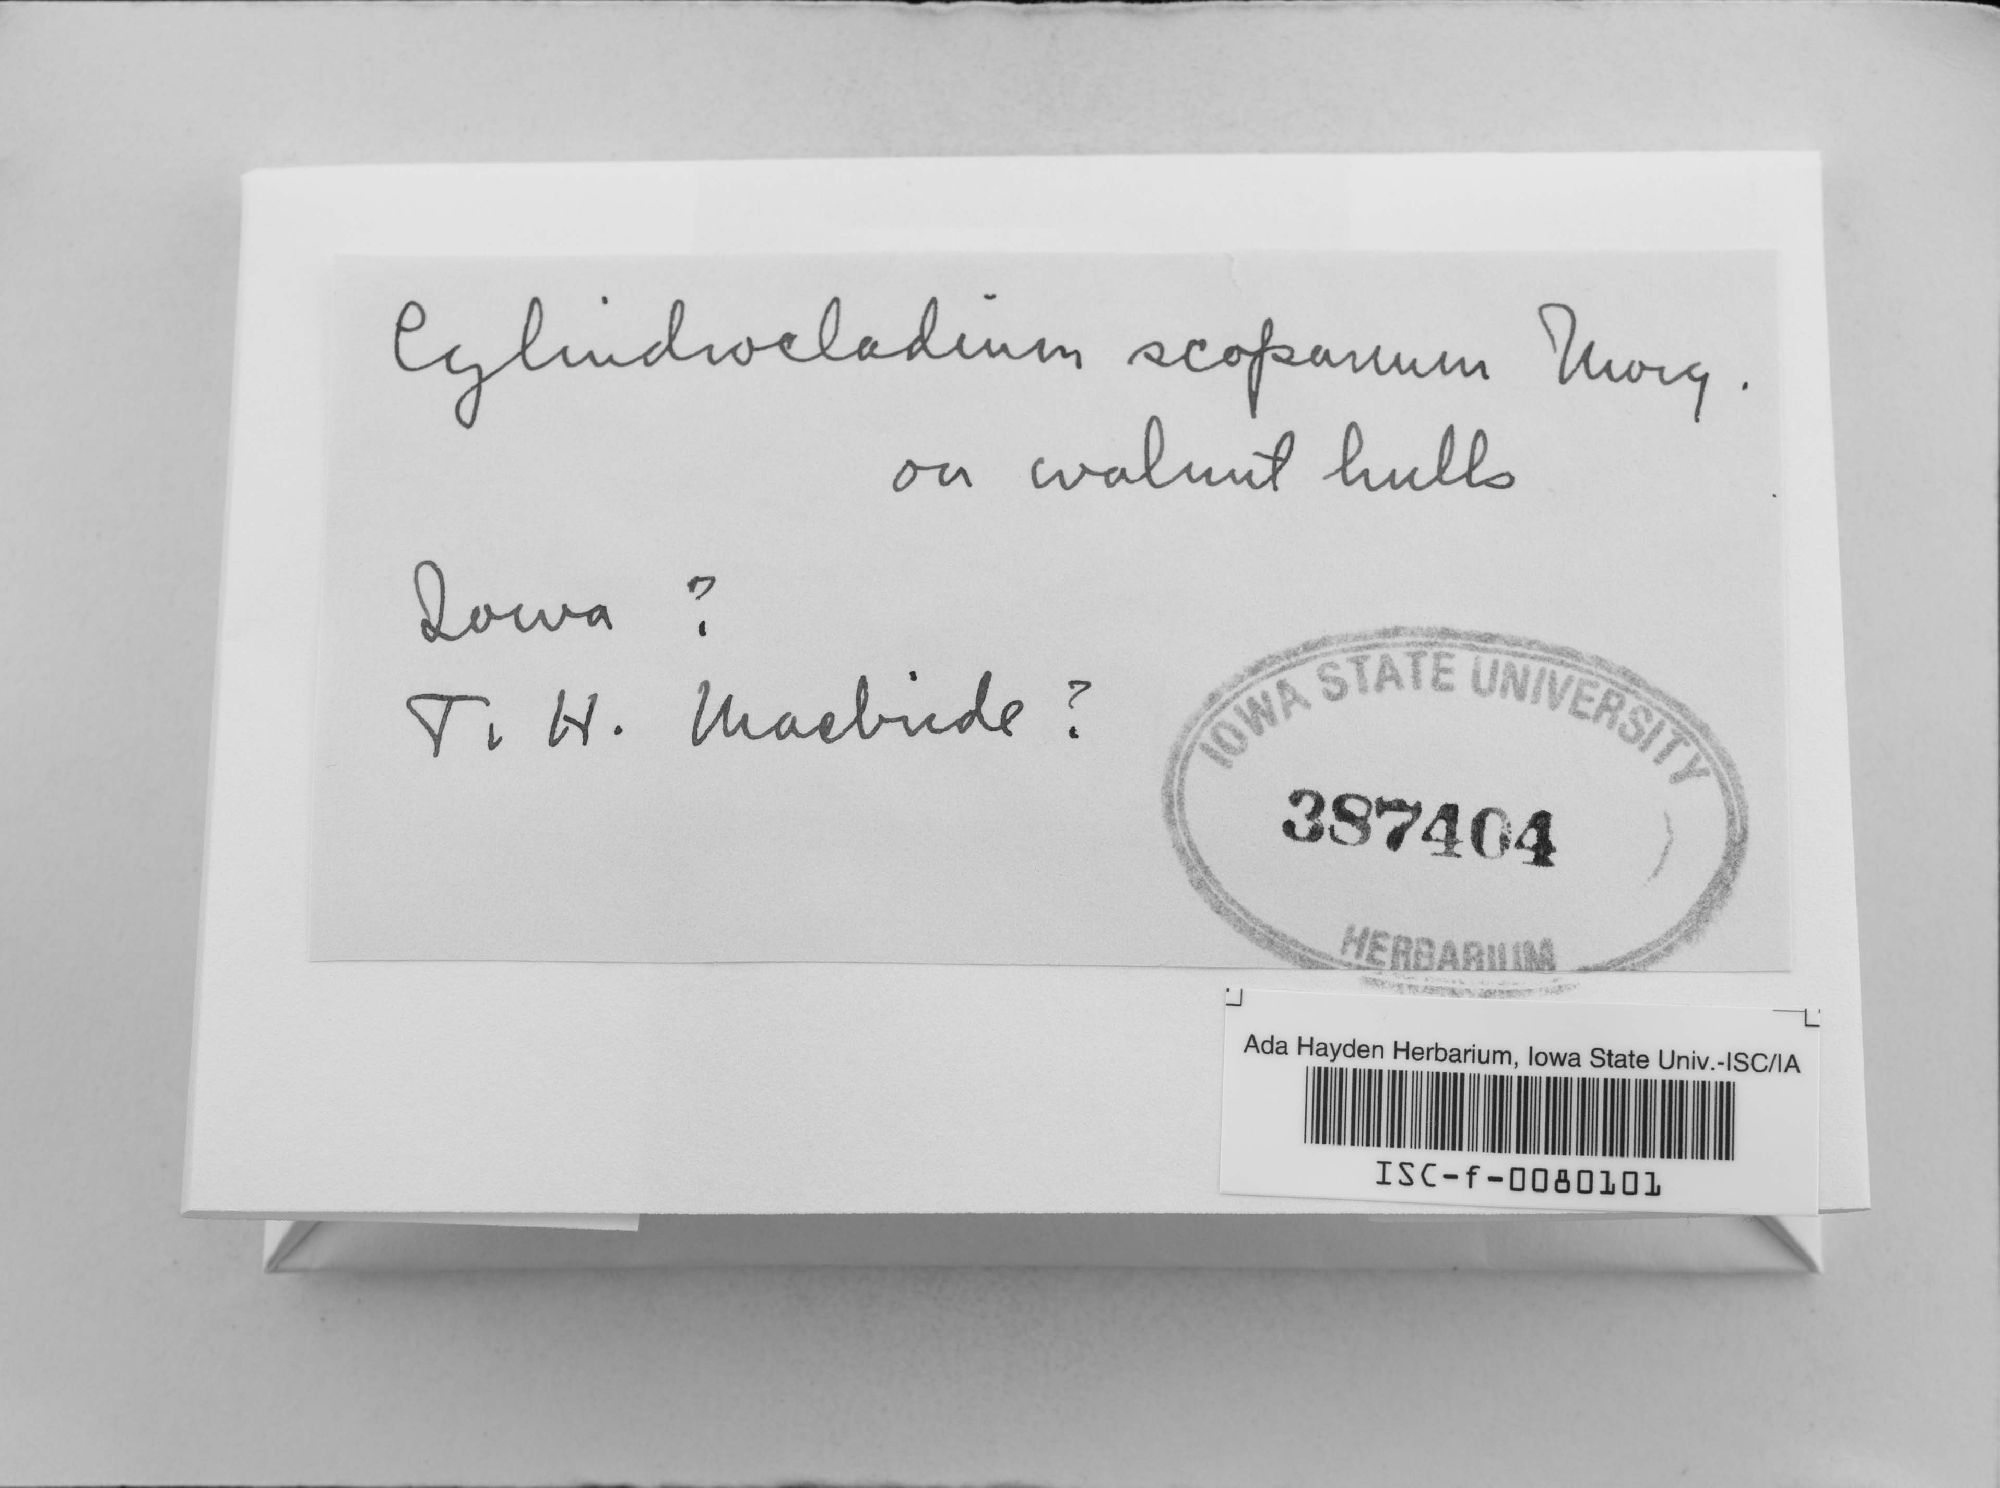 Cylindrocladium scoparium Morg.
on walnut hulls
Iowa ?
T. H. Macbride ?
IOWA STATE UNIVERSITY
387404
HERBARIUM
Ada Hayden Herbarium, Iowa State Univ.-ISC/IA
ISC-f-0080101